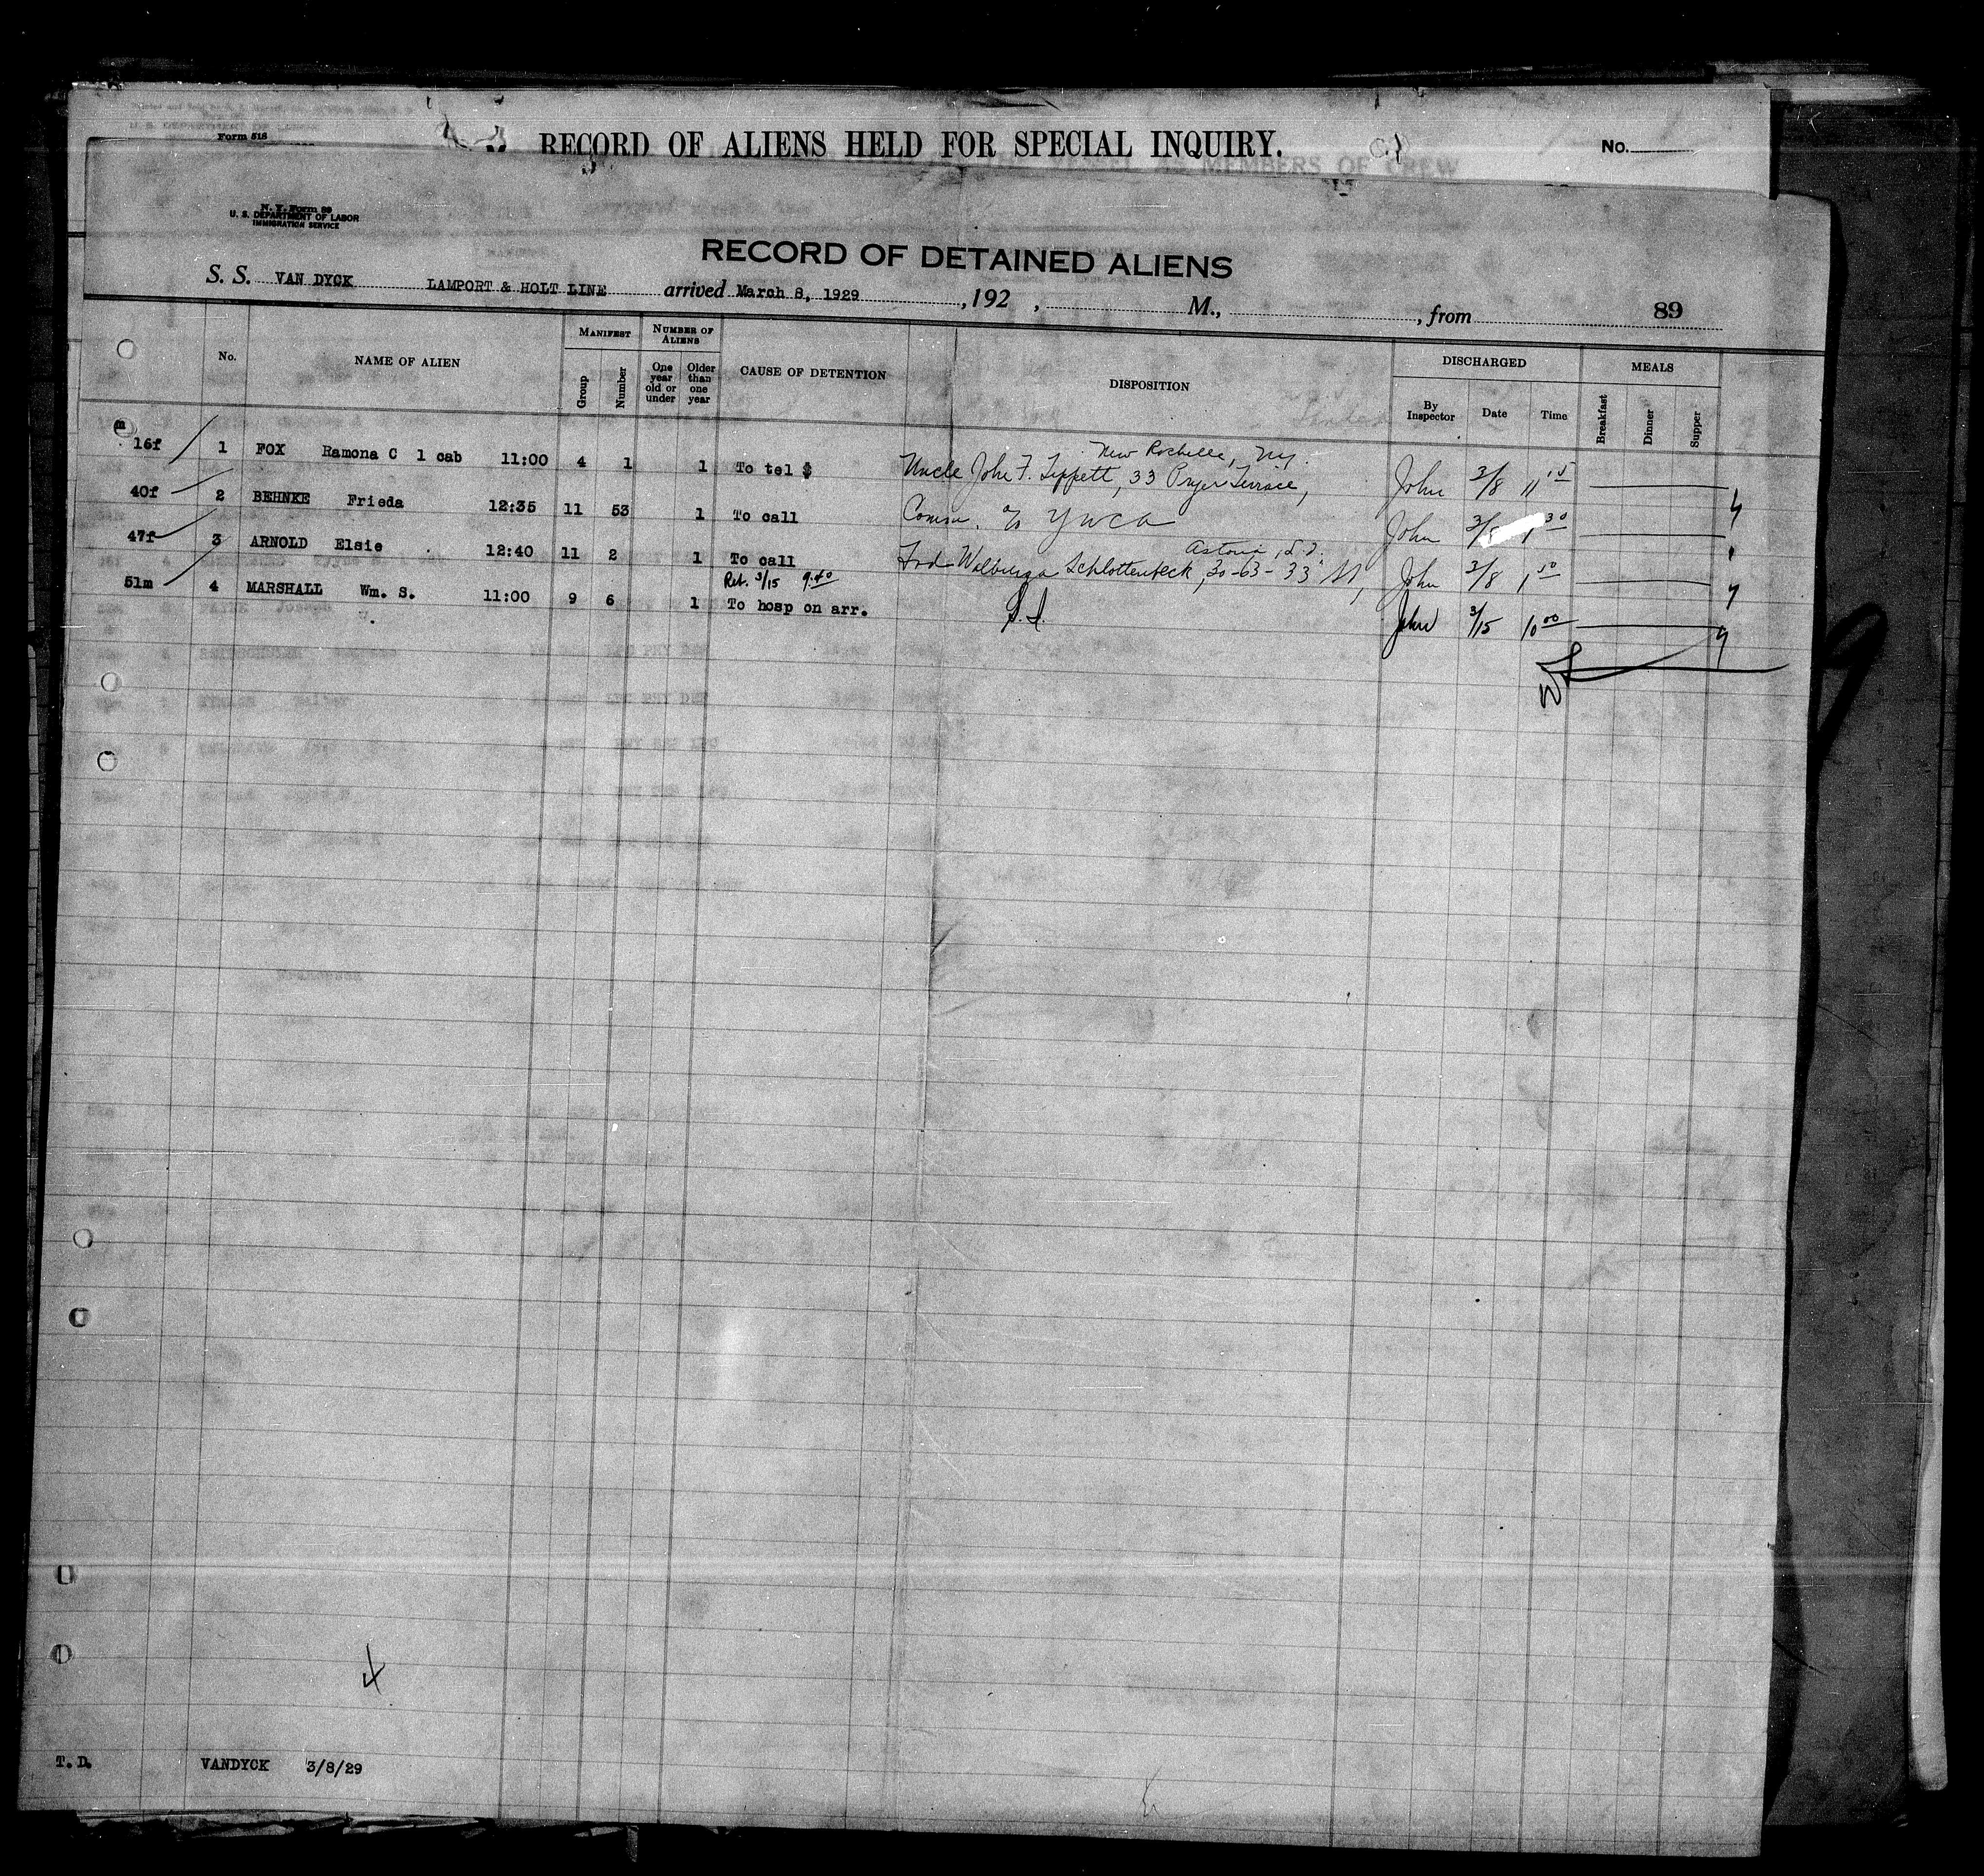 Form 518
RECORD OF ALIENS HELD FOR SPECIAL INQUIRY.
No.
MEMBERS OF CREW
N. Y. Form 89
U. S. DEPARTMENT OF LABOR
IMMIGRATION SERVICE
RECORD OF DETAINED ALIENS
S. S. VAN DYCK LAMPORT & HOLT LINE arrived March 8, 1929, 192 , M., , from 89
No. NAME OF ALIEN MANIFEST Group Number NUMBER OF ALIENS One year old or under Older than one year CAUSE OF DETENTION DISPOSITION DISCHARGED By Inspector Date Time MEALS Breakfast Dinner Supper
New Rochelle, NY.
16f 1 FOX Ramona C 1 cab 11:00 4 1 1 To tel $ Uncle John F. Tippett, 33 Pryer Terrace, John 3/8 11 15
40f 2 BEHNKE Frieda 12:35 11 53 1 To call Comm. % YWCA John 3/8 1 30
Astoria, L.I.
47f 3 ARNOLD Elsie 12:40 11 2 1 To call Frd Walburga Schlottenbeck, 30-63-33 St, John 3/8 1 50
Ret. 3/15 9:40
51m 4 MARSHALL Wm. S. 11:00 9 6 1 To hosp on arr. S.I. John 3/15 10 00
T. D. VANDYCK 3/8/29